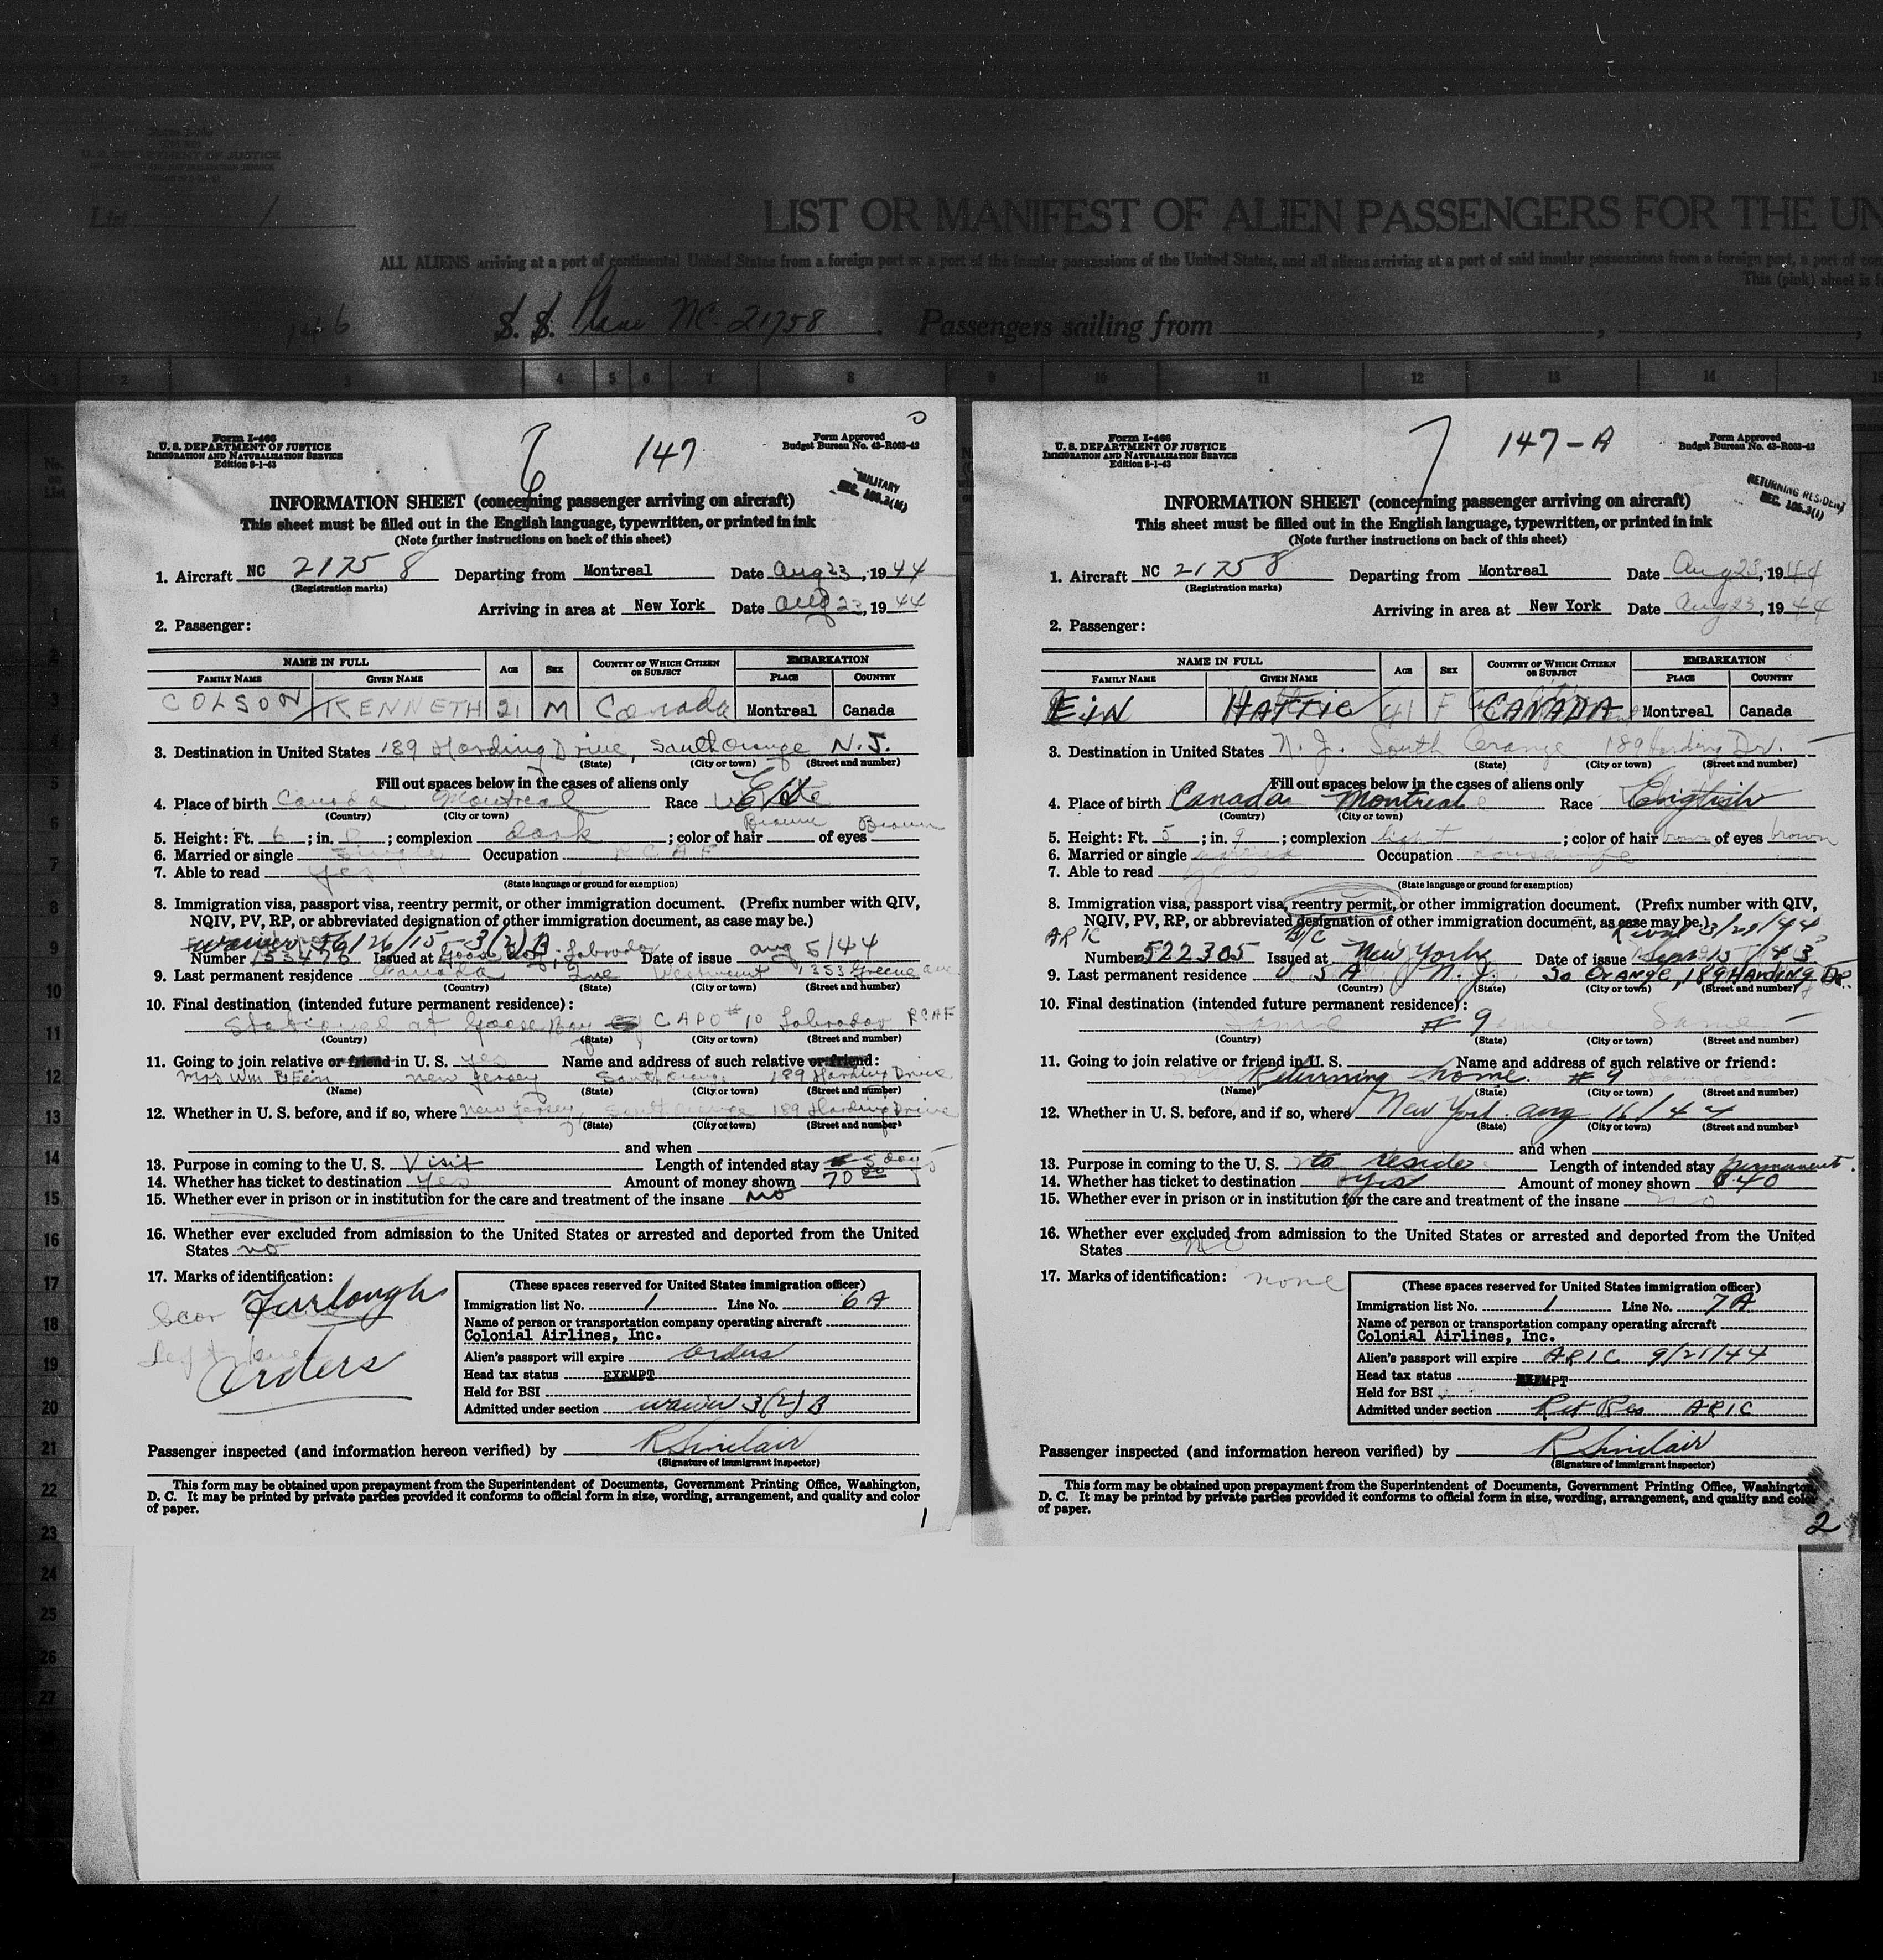 U. S. DEPARTMENT OF JUSTICE
List 1
LIST OR MANIFEST OF ALIEN PASSENGERS FOR THE UN
ALL ALIENS arriving at a port of continental United States from a foreign port or a port of the insular possessions of the United States, and all aliens arriving at a port of said insular possessions from a foreign port, a port of con
This (pink) sheet is
146 S. S. Plane NC-21758 Passengers sailing from
2 3 4 5 6 7 8 9 10 11 12 13 14
Form I-466
U. S. DEPARTMENT OF JUSTICE
IMMIGRATION AND NATURALIZATION SERVICE
Edition 8-1-43
6 147
Form Approved
Budget Bureau No. 43-R063-42
MILITARY
SEC. 105.3(M)
INFORMATION SHEET (concerning passenger arriving on aircraft)
This sheet must be filled out in the English language, typewritten, or printed in ink
(Note further instructions on back of this sheet)
1. Aircraft NC 21758 Departing from Montreal Date Aug 23, 1944
(Registration marks)
Arriving in area at New York Date Aug 23, 1944
2. Passenger:
NAME IN FULL AGE SEX COUNTRY OF WHICH CITIZEN OR SUBJECT EMBARKATION
FAMILY NAME GIVEN NAME PLACE COUNTRY
COLSON KENNETH 21 M Canada Montreal Canada
3. Destination in United States 189 Harding Drive, South Orange N.J.
(State) (City or town) (Street and number)
Fill out spaces below in the cases of aliens only
4. Place of birth Canada Montreal Race
(Country) (City or town)
5. Height: Ft. 6; in. 0; complexion dark; color of hair Brown of eyes Brown
6. Married or single Single Occupation RCAF
7. Able to read yes
(State language or ground for exemption)
8. Immigration visa, passport visa, reentry permit, or other immigration document. (Prefix number with QIV,
NQIV, PV, RP, or abbreviated designation of other immigration document, as case may be.)
waiver 3(2)B
Number 153476 Issued at Goose Bay, Labrador Date of issue Aug 5/44
9. Last permanent residence Canada Que Westmount 1353 Greene ave
(Country) (State) (City or town) (Street and number)
10. Final destination (intended future permanent residence):
Stationed at Goose Bay CAPO #10 Labrador RCAF
(Country) (State) (City or town) (Street and number)
11. Going to join relative or friend in U. S. yes Name and address of such relative or friend:
Mrs Wm B Ein New Jersey South Orange 189 Harding Drive
(Name) (State) (City or town) (Street and number)
12. Whether in U. S. before, and if so, where New Jersey, South Orange 189 Harding Drive
(State) (City or town) (Street and number)
and when
13. Purpose in coming to the U. S. Visit Length of intended stay 5 days
14. Whether has ticket to destination yes Amount of money shown 70 00
15. Whether ever in prison or in institution for the care and treatment of the insane no
16. Whether ever excluded from admission to the United States or arrested and deported from the United
States no
17. Marks of identification:
Scar
Left knee
Furlough
Orders
(These spaces reserved for United States immigration officer)
Immigration list No. 1 Line No. 6A
Name of person or transportation company operating aircraft
Colonial Airlines, Inc.
Alien's passport will expire orders
Head tax status EXEMPT
Held for BSI
Admitted under section waiver 3(2)B
Passenger inspected (and information hereon verified) by R Sinclair
(Signature of immigrant inspector)
This form may be obtained upon prepayment from the Superintendent of Documents, Government Printing Office, Washington,
D. C. It may be printed by private parties provided it conforms to official form in size, wording, arrangement, and quality and color
of paper.
1
Form I-466
U. S. DEPARTMENT OF JUSTICE
IMMIGRATION AND NATURALIZATION SERVICE
Edition 8-1-43
7 147-A
Form Approved
Budget Bureau No. 43-R063-42
RETURNING RESIDENT
SEC. 105.3(1)
INFORMATION SHEET (concerning passenger arriving on aircraft)
This sheet must be filled out in the English language, typewritten, or printed in ink
(Note further instructions on back of this sheet)
1. Aircraft NC 21758 Departing from Montreal Date Aug 23, 1944
(Registration marks)
Arriving in area at New York Date Aug 23, 1944
2. Passenger:
NAME IN FULL AGE SEX COUNTRY OF WHICH CITIZEN OR SUBJECT EMBARKATION
FAMILY NAME GIVEN NAME PLACE COUNTRY
EIN HATTIE 41 F CANADA Montreal Canada
3. Destination in United States N. J. South Orange 189 Harding Dr.
(State) (City or town) (Street and number)
Fill out spaces below in the cases of aliens only
4. Place of birth Canada Montreal Race English
(Country) (City or town)
5. Height: Ft. 5; in. 9; complexion light; color of hair brown of eyes brown
6. Married or single married Occupation housewife
7. Able to read yes
(State language or ground for exemption)
8. Immigration visa, passport visa, reentry permit, or other immigration document. (Prefix number with QIV,
NQIV, PV, RP, or abbreviated designation of other immigration document, as case may be.)
ARIC
Number 522305 Issued at New York Date of issue
9. Last permanent residence U S A N. J. So Orange, 189 Harding Dr.
(Country) (State) (City or town) (Street and number)
10. Final destination (intended future permanent residence):
Same # 9 Same Same
(Country) (State) (City or town) (Street and number)
11. Going to join relative or friend in U. S. Name and address of such relative or friend:
Returning home #9
(Name) (State) (City or town) (Street and number)
12. Whether in U. S. before, and if so, where New York Aug 16/44
(State) (City or town) (Street and number)
and when
13. Purpose in coming to the U. S. to reside Length of intended stay permanent.
14. Whether has ticket to destination yes Amount of money shown $40
15. Whether ever in prison or in institution for the care and treatment of the insane no
16. Whether ever excluded from admission to the United States or arrested and deported from the United
States no
17. Marks of identification: none
(These spaces reserved for United States immigration officer)
Immigration list No. 1 Line No. 7A
Name of person or transportation company operating aircraft
Colonial Airlines, Inc.
Alien's passport will expire ARIC 9/21/44
Head tax status EXEMPT
Held for BSI
Admitted under section Ret Res ARIC
Passenger inspected (and information hereon verified) by R Sinclair
(Signature of immigrant inspector)
This form may be obtained upon prepayment from the Superintendent of Documents, Government Printing Office, Washington,
D. C. It may be printed by private parties provided it conforms to official form in size, wording, arrangement, and quality and color
of paper.
2